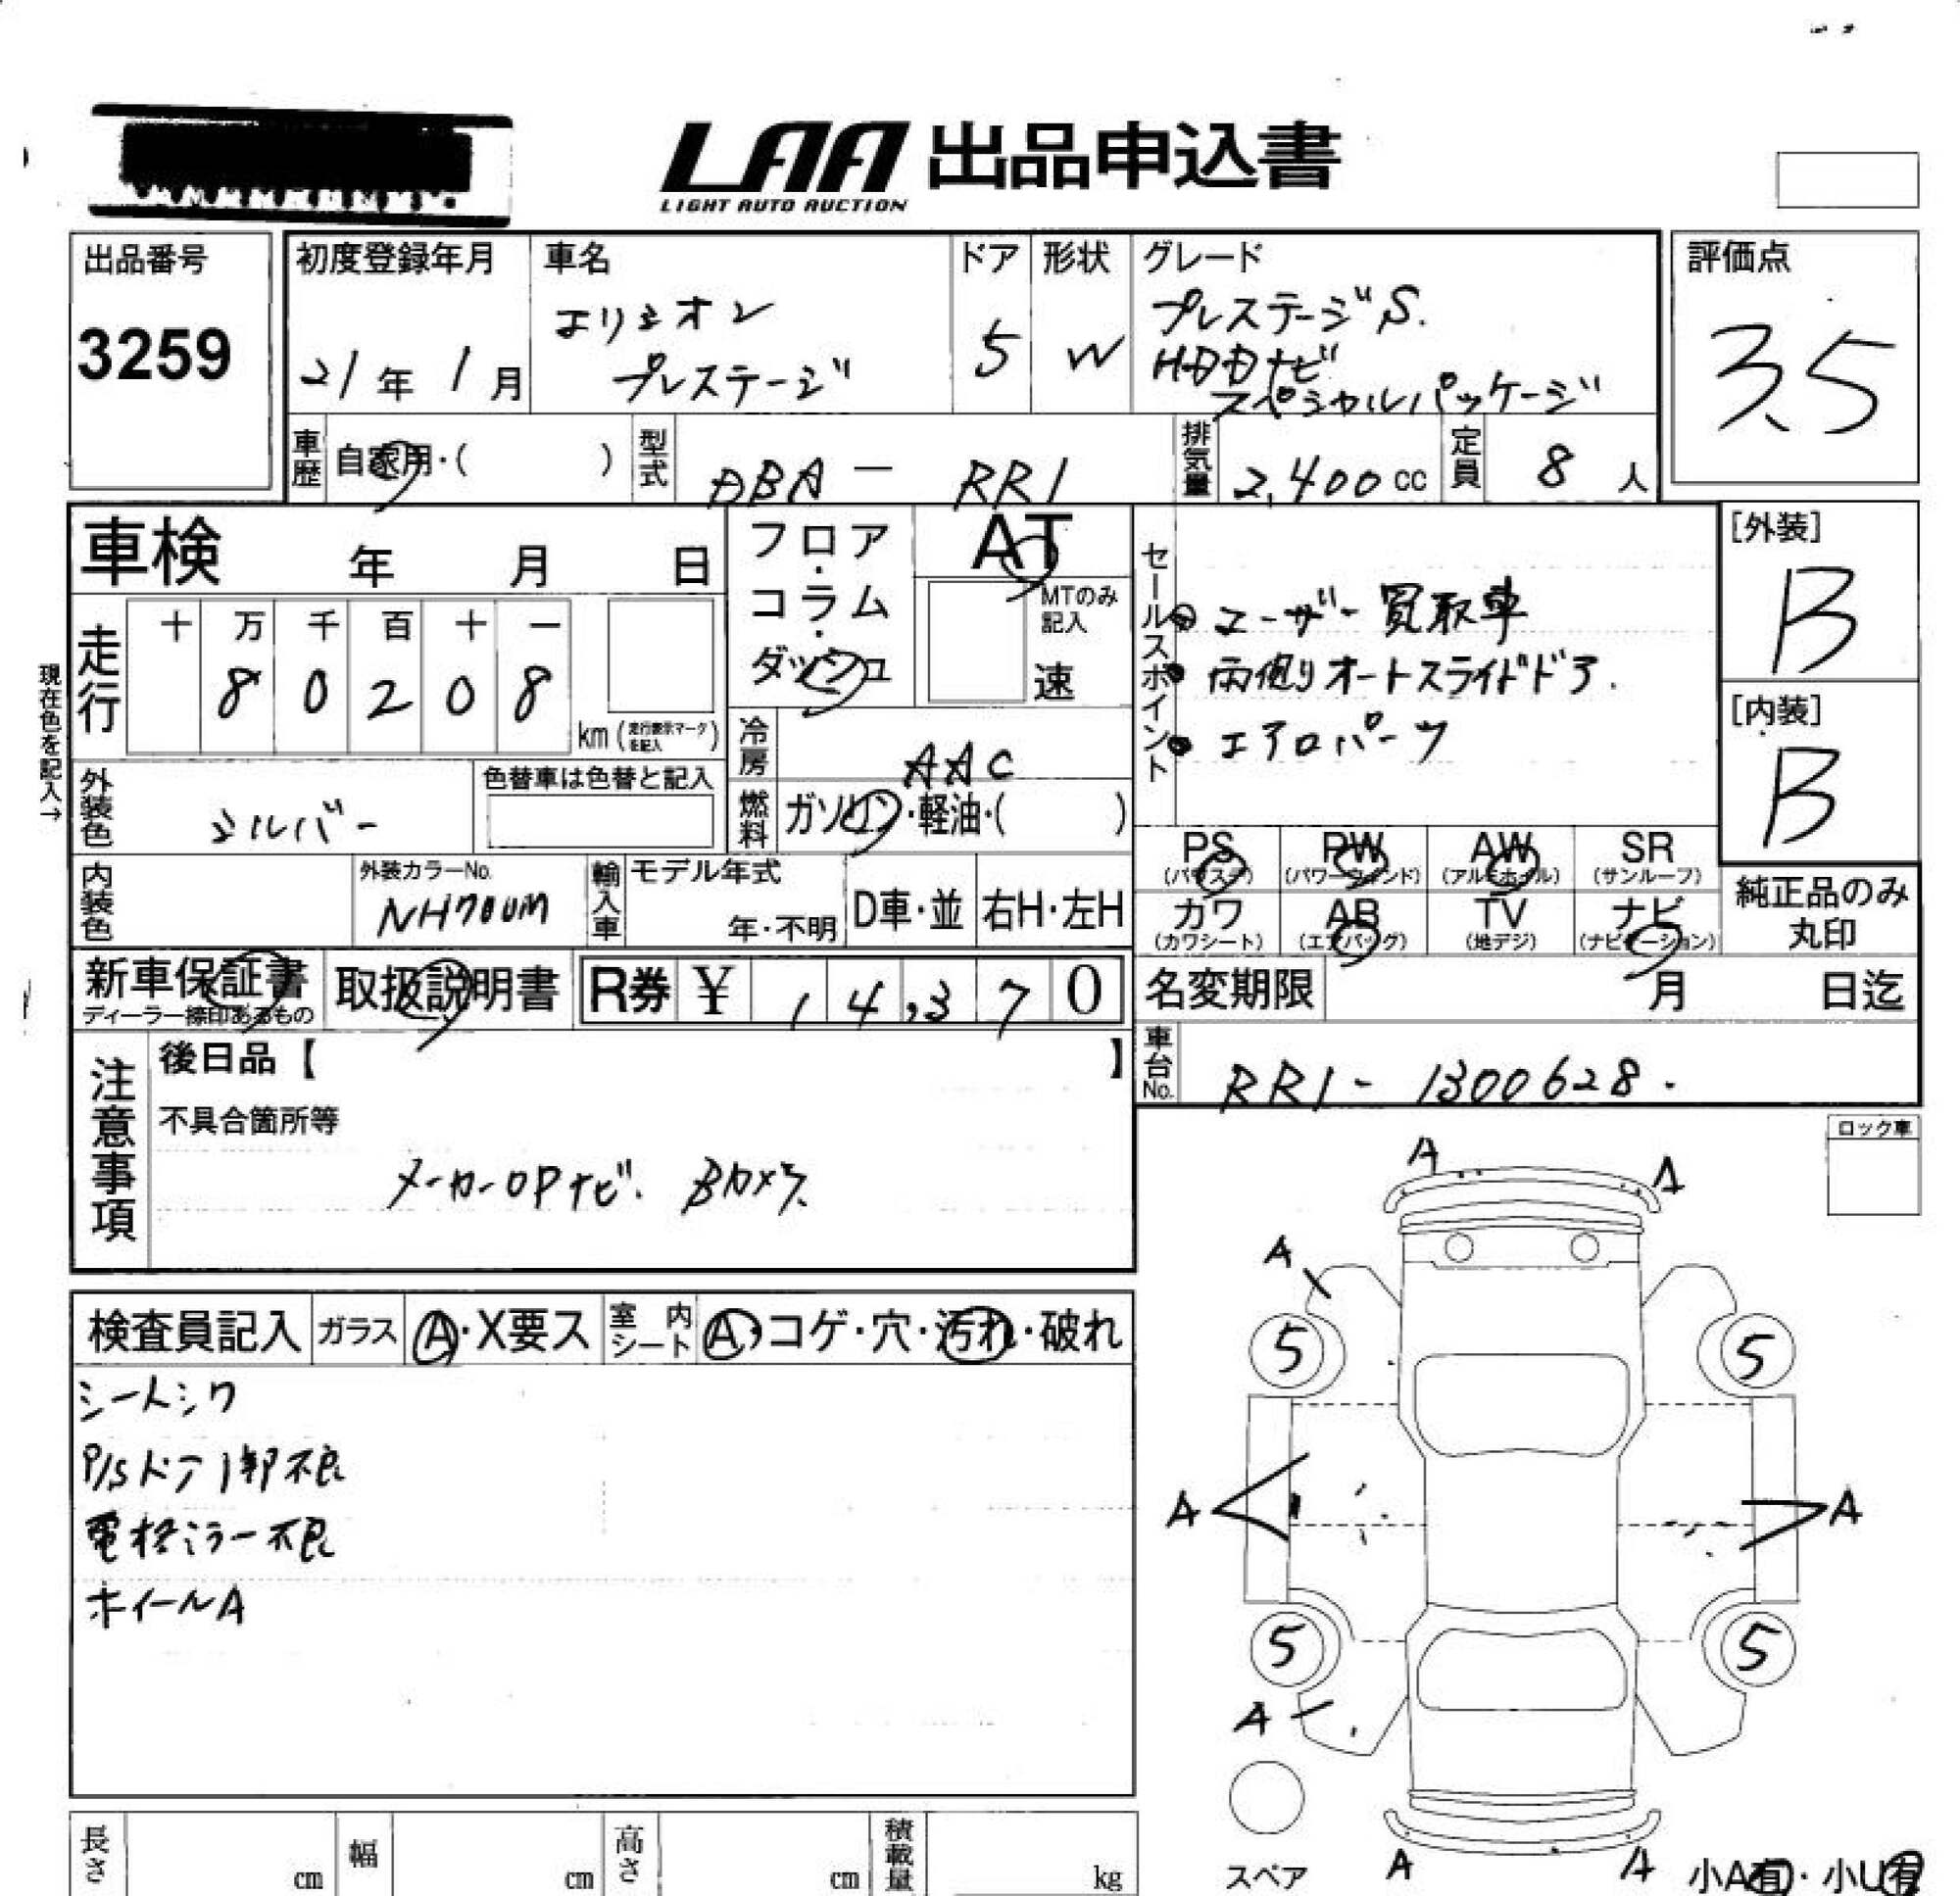 LAA 出品申込書
LIGHT AUTO AUCTION
出品番号
3259
初度登録年月
21年 1月
車名
エリシオン
プレステージ
ドア
5
形状
W
グレード
プレステージS.
HDDナビ
スペシャルパッケージ
評価点
3.5
車歴 自家用・( )
型式 DBA － RR1
排気量 2,400cc
定員 8人
車検 年 月 日
フロア・コラム・ダッシュ
AT
MTのみ記入
速
セールスポイント
ユーザー買取車
両側オートスライドドア.
エアロパーツ
[外装]
B
[内装]
B
現在色を記入→
走行
十 万 千 百 十 一
8 0 2 0 8
km(走行表示マークを記入)
冷房 AAC
燃料 ガソリン・軽油・( )
外装色 シルバー
色替車は色替と記入
内装色
外装カラーNo.
NH700M
輸入車
モデル年式
年・不明
D車・並
右H・左H
PS (パワステ)
PW (パワーウィンド)
AW (アルミホイル)
SR (サンルーフ)
カワ (カワシート)
AB (エアバッグ)
TV (地デジ)
ナビ (ナビゲーション)
純正品のみ
丸印
新車保証書
ディーラー捺印あるもの
取扱説明書
R券 ¥ 14,370
名変期限 月 日迄
車台No. RR1 - 1300628.
注意事項
後日品【 】
不具合箇所等
メーカーOPナビ. Bカメラ
ロック車
検査員記入
ガラス A・X要ス
室内シート A・コゲ・穴・汚れ・破れ
シートシワ
P/Sドア1部不良
電格ミラー不良
ホイールA
A A
A
5 5
A A
5 5
A
A A
スペア
小A有・小U有
長さ cm
幅 cm
高さ cm
積載量 kg